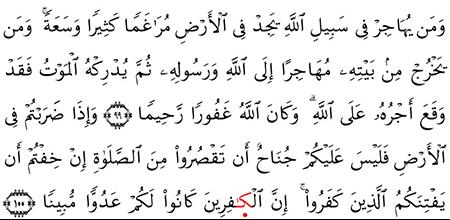 وَمَن يُهَاجِرْ فِى سَبِيلِ ٱللَّهِ يَجِدْ فِى ٱلْأَرْضِ مُرَٰغَمًا كَثِيرًا وَسَعَةً ۚ وَمَن
يَخْرُجْ مِنۢ بَيْتِهِۦ مُهَاجِرًا إِلَى ٱللَّهِ وَرَسُولِهِۦ ثُمَّ يُدْرِكْهُ ٱلْمَوْتُ فَقَدْ
وَقَعَ أَجْرُهُۥ عَلَى ٱللَّهِ ۗ وَكَانَ ٱللَّهُ غَفُورًا رَّحِيمًا ﴿٩٩﴾ وَإِذَا ضَرَبْتُمْ فِى
ٱلْأَرْضِ فَلَيْسَ عَلَيْكُمْ جُنَاحٌ أَن تَقْصُرُوا۟ مِنَ ٱلصَّلَوٰةِ إِنْ خِفْتُمْ أَن
يَفْتِنَكُمُ ٱلَّذِينَ كَفَرُوٓا۟ ۚ إِنَّ ٱلْكَٰفِرِينَ كَانُوا۟ لَكُمْ عَدُوًّا مُّبِينًا ﴿١٠٠﴾